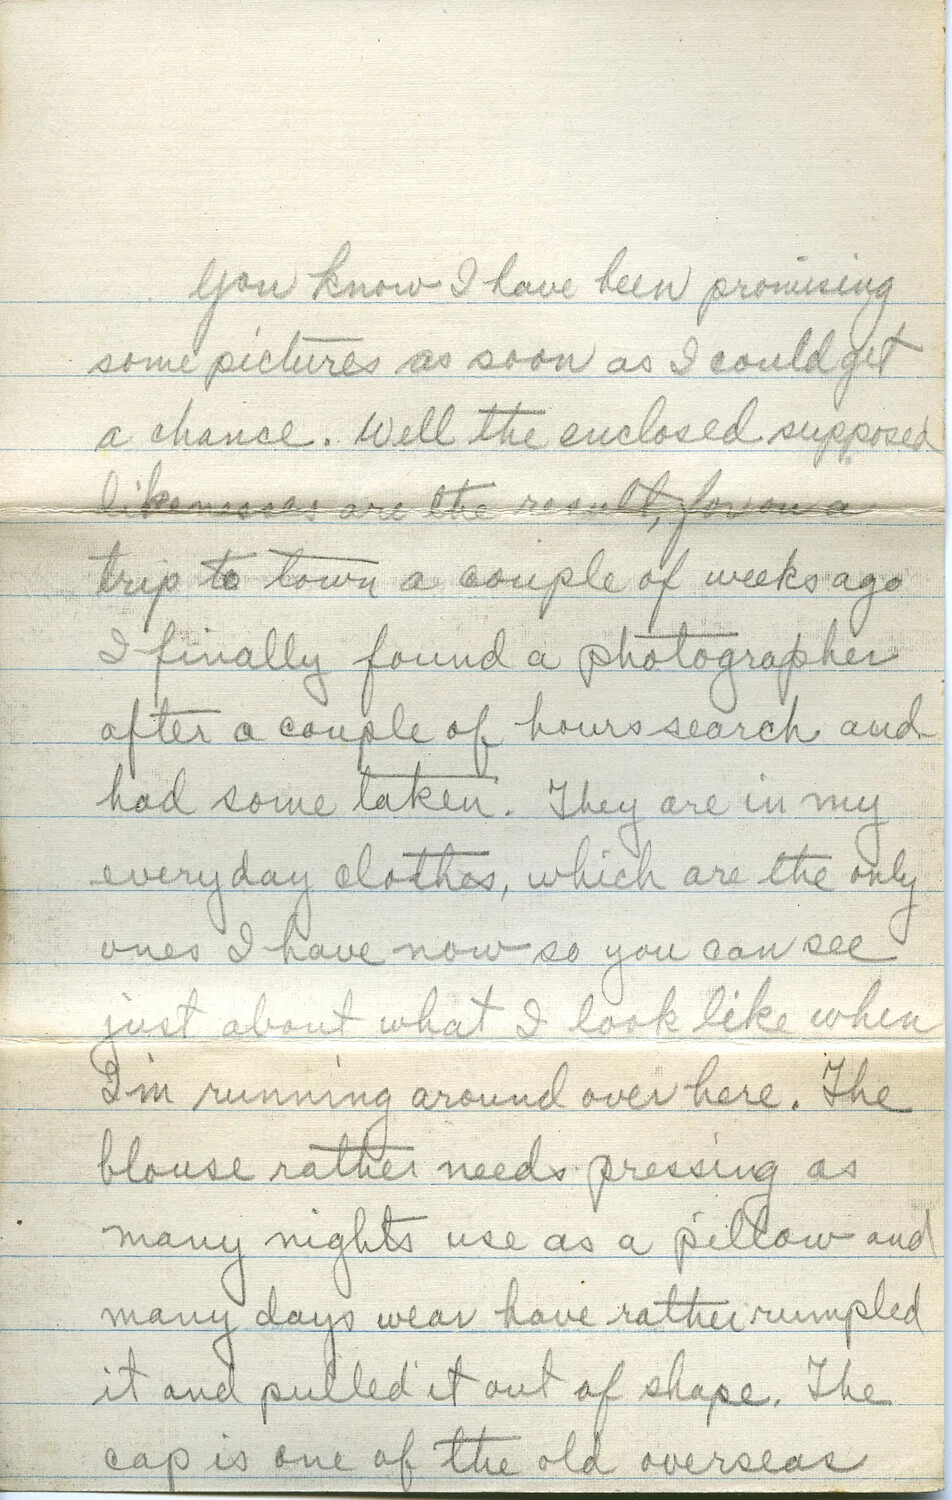 You know I have been promising
some pictures as soon as I could get
a chance. Well the enclosed supposed
likenesses are the result, for on a
trip to town a couple of weeks ago
I finally found a photographer
after a couple of hours search and
had some taken. They are in my
everyday clothes, which are the only
ones I have now so you can see
just about what I look like when
I'm running around over here. The
blouse rather needs pressing as
many nights use as a pillow and
many days wear have rather rumpled
it and pulled it out of shape. The
cap is one of the old overseas